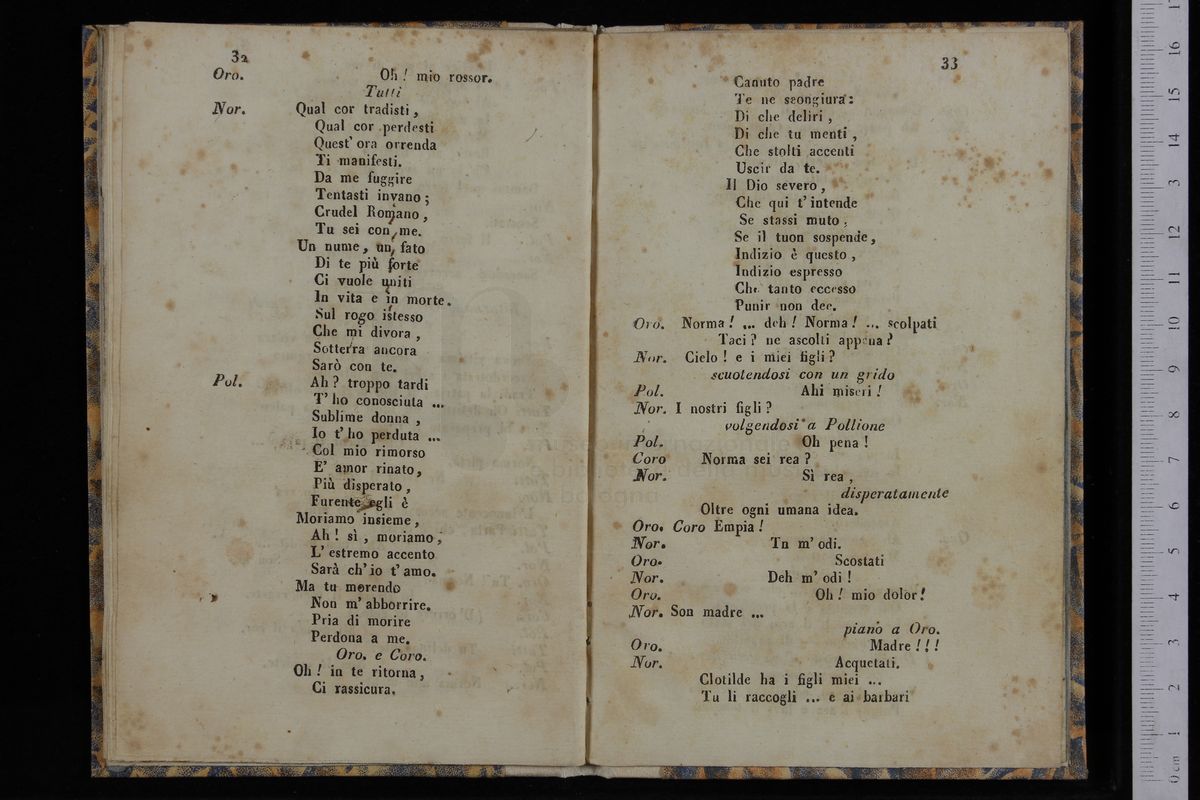 32
Oro. Oh! mio rossor.
Tutti
Nor. Qual cor tradisti,
Qual cor perdesti
Quest' ora orrenda
Ti manifesti.
Da me fuggire
Tentasti invano;
Crudel Romano,
Tu sei con me.
Un nume, un fato
Di te più forte
Ci vuole uniti
In vita e in morte.
Sul rogo istesso
Che mi divora,
Sotterra ancora
Sarò con te.
Pol. Ah? troppo tardi
T' ho conosciuta ...
Sublime donna,
Io t' ho perduta ...
Col mio rimorso
E' amor rinato,
Più disperato,
Furente egli è
Moriamo insieme,
Ah! sì, moriamo;
L' estremo accento
Sarà ch' io t' amo.
Ma tu morendo
Non m' abborrire.
Pria di morire
Perdona a me.
Oro. e Coro.
Oh! in te ritorna,
Ci rassicura.
33
Canuto padre
Te ne scongiura:
Di che deliri,
Di che tu menti,
Che stolti accenti
Uscir da te.
Il Dio severo,
Che qui t' intende
Se stassi muto,
Se il tuon sospende,
Indizio è questo,
Indizio espresso
Che tanto eccesso
Punir non dee.
Oro. Norma! ... deh! Norma! ... scolpati
Taci? ne ascolti appena?
Nor. Cielo! e i miei figli?
scuotendosi con un grido
Pol. Ahi miseri!
Nor. I nostri figli?
volgendosi a Pollione
Pol. Oh pena!
Coro Norma sei rea?
Nor. Sì rea,
disperatamente
Oltre ogni umana idea.
Oro. Coro Empia!
Nor. Tn m' odi.
Oro. Scostati
Nor. Deh m' odi!
Oro. Oh! mio dolor!
Nor. Son madre ...
piano a Oro.
Oro. Madre!!!
Nor. Acquetati.
Clotilde ha i figli miei ...
Tu li raccogli ... e ai barbari